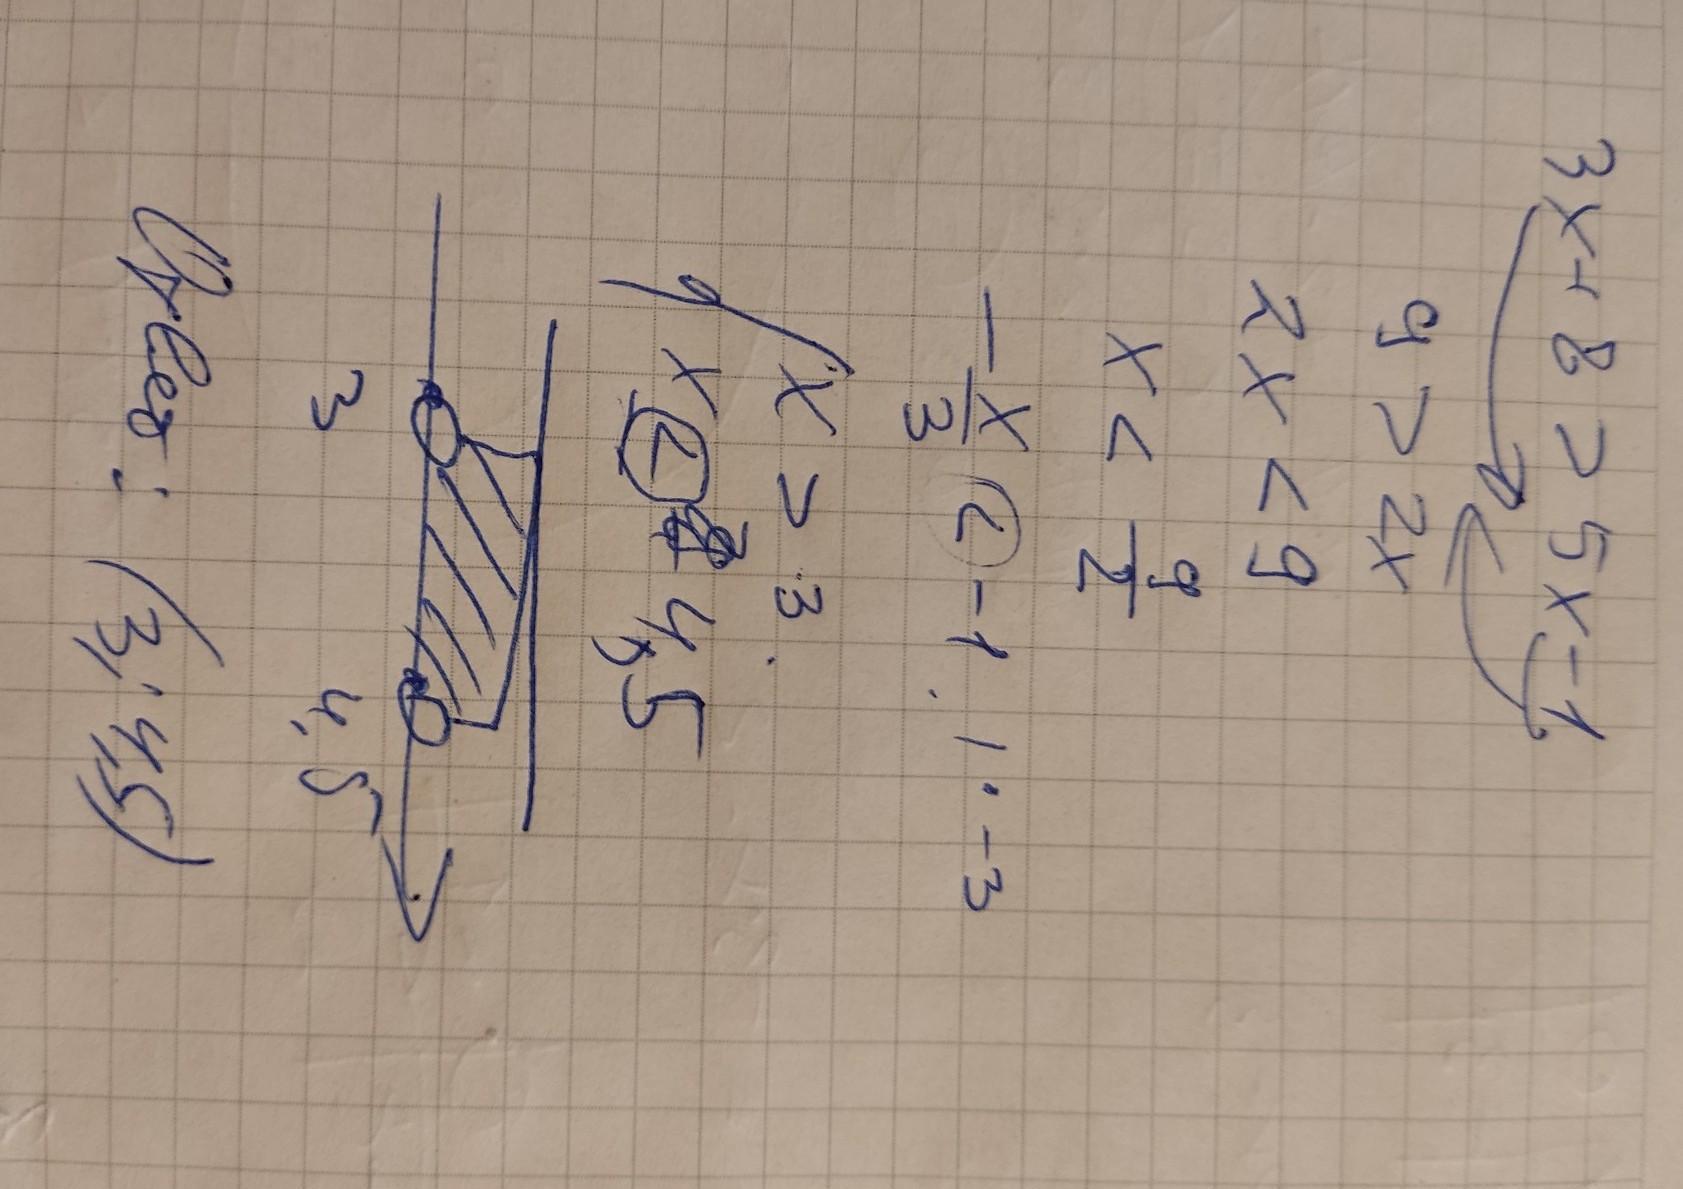 3x+8 > 5x-1
9 > 2x
2x < 9
x < 9/2
-x/3 < -1 . | · -3
x > 3
x < 4,5
3 4,5
Ответ: (3; 4,5)